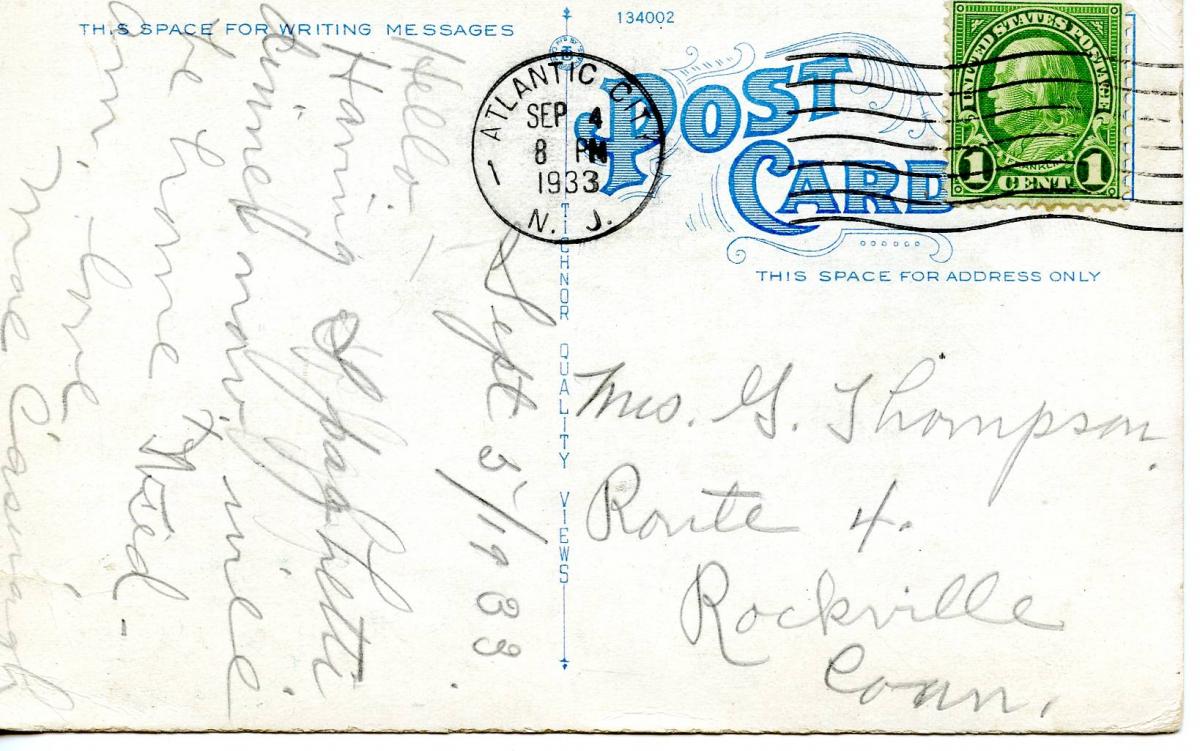 THIS SPACE FOR WRITING MESSAGES
134002
POST CARD
UNITED STATES POSTAGE
FRANKLIN
1 CENT 1
ATLANTIC CITY
SEP 4
8 PM
1933
N. J.
THIS SPACE FOR ADDRESS ONLY
TECHNOR QUALITY VIEWS
Sept 5/1933.
Hello -
Having Spaghetti
dinner now, will
be home Wed -
am, Love
Mae
Mrs. G. Thompson.
Route 4.
Rockville
Conn.